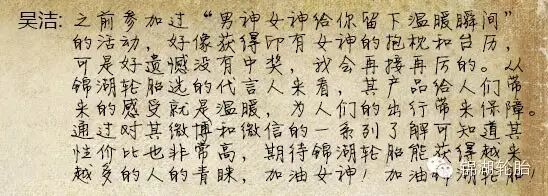 吴洁:之前参加过“男神女神给你留下温暖瞬间”
的活动，好像获得印有女神的抱枕和台历，
可是好遗憾没有中奖，我会再接再厉的。从
锦湖轮胎选的代言人来看，其产品给人们带
来的感受就是温暖，为人们的出行带来保障。
通过对其微博和微信的一系列了解可知道其
性价比也非常高，期待锦湖轮胎能获得越来
越多的人的青睐，加油女神！加油锦湖轮胎！
锦湖轮胎